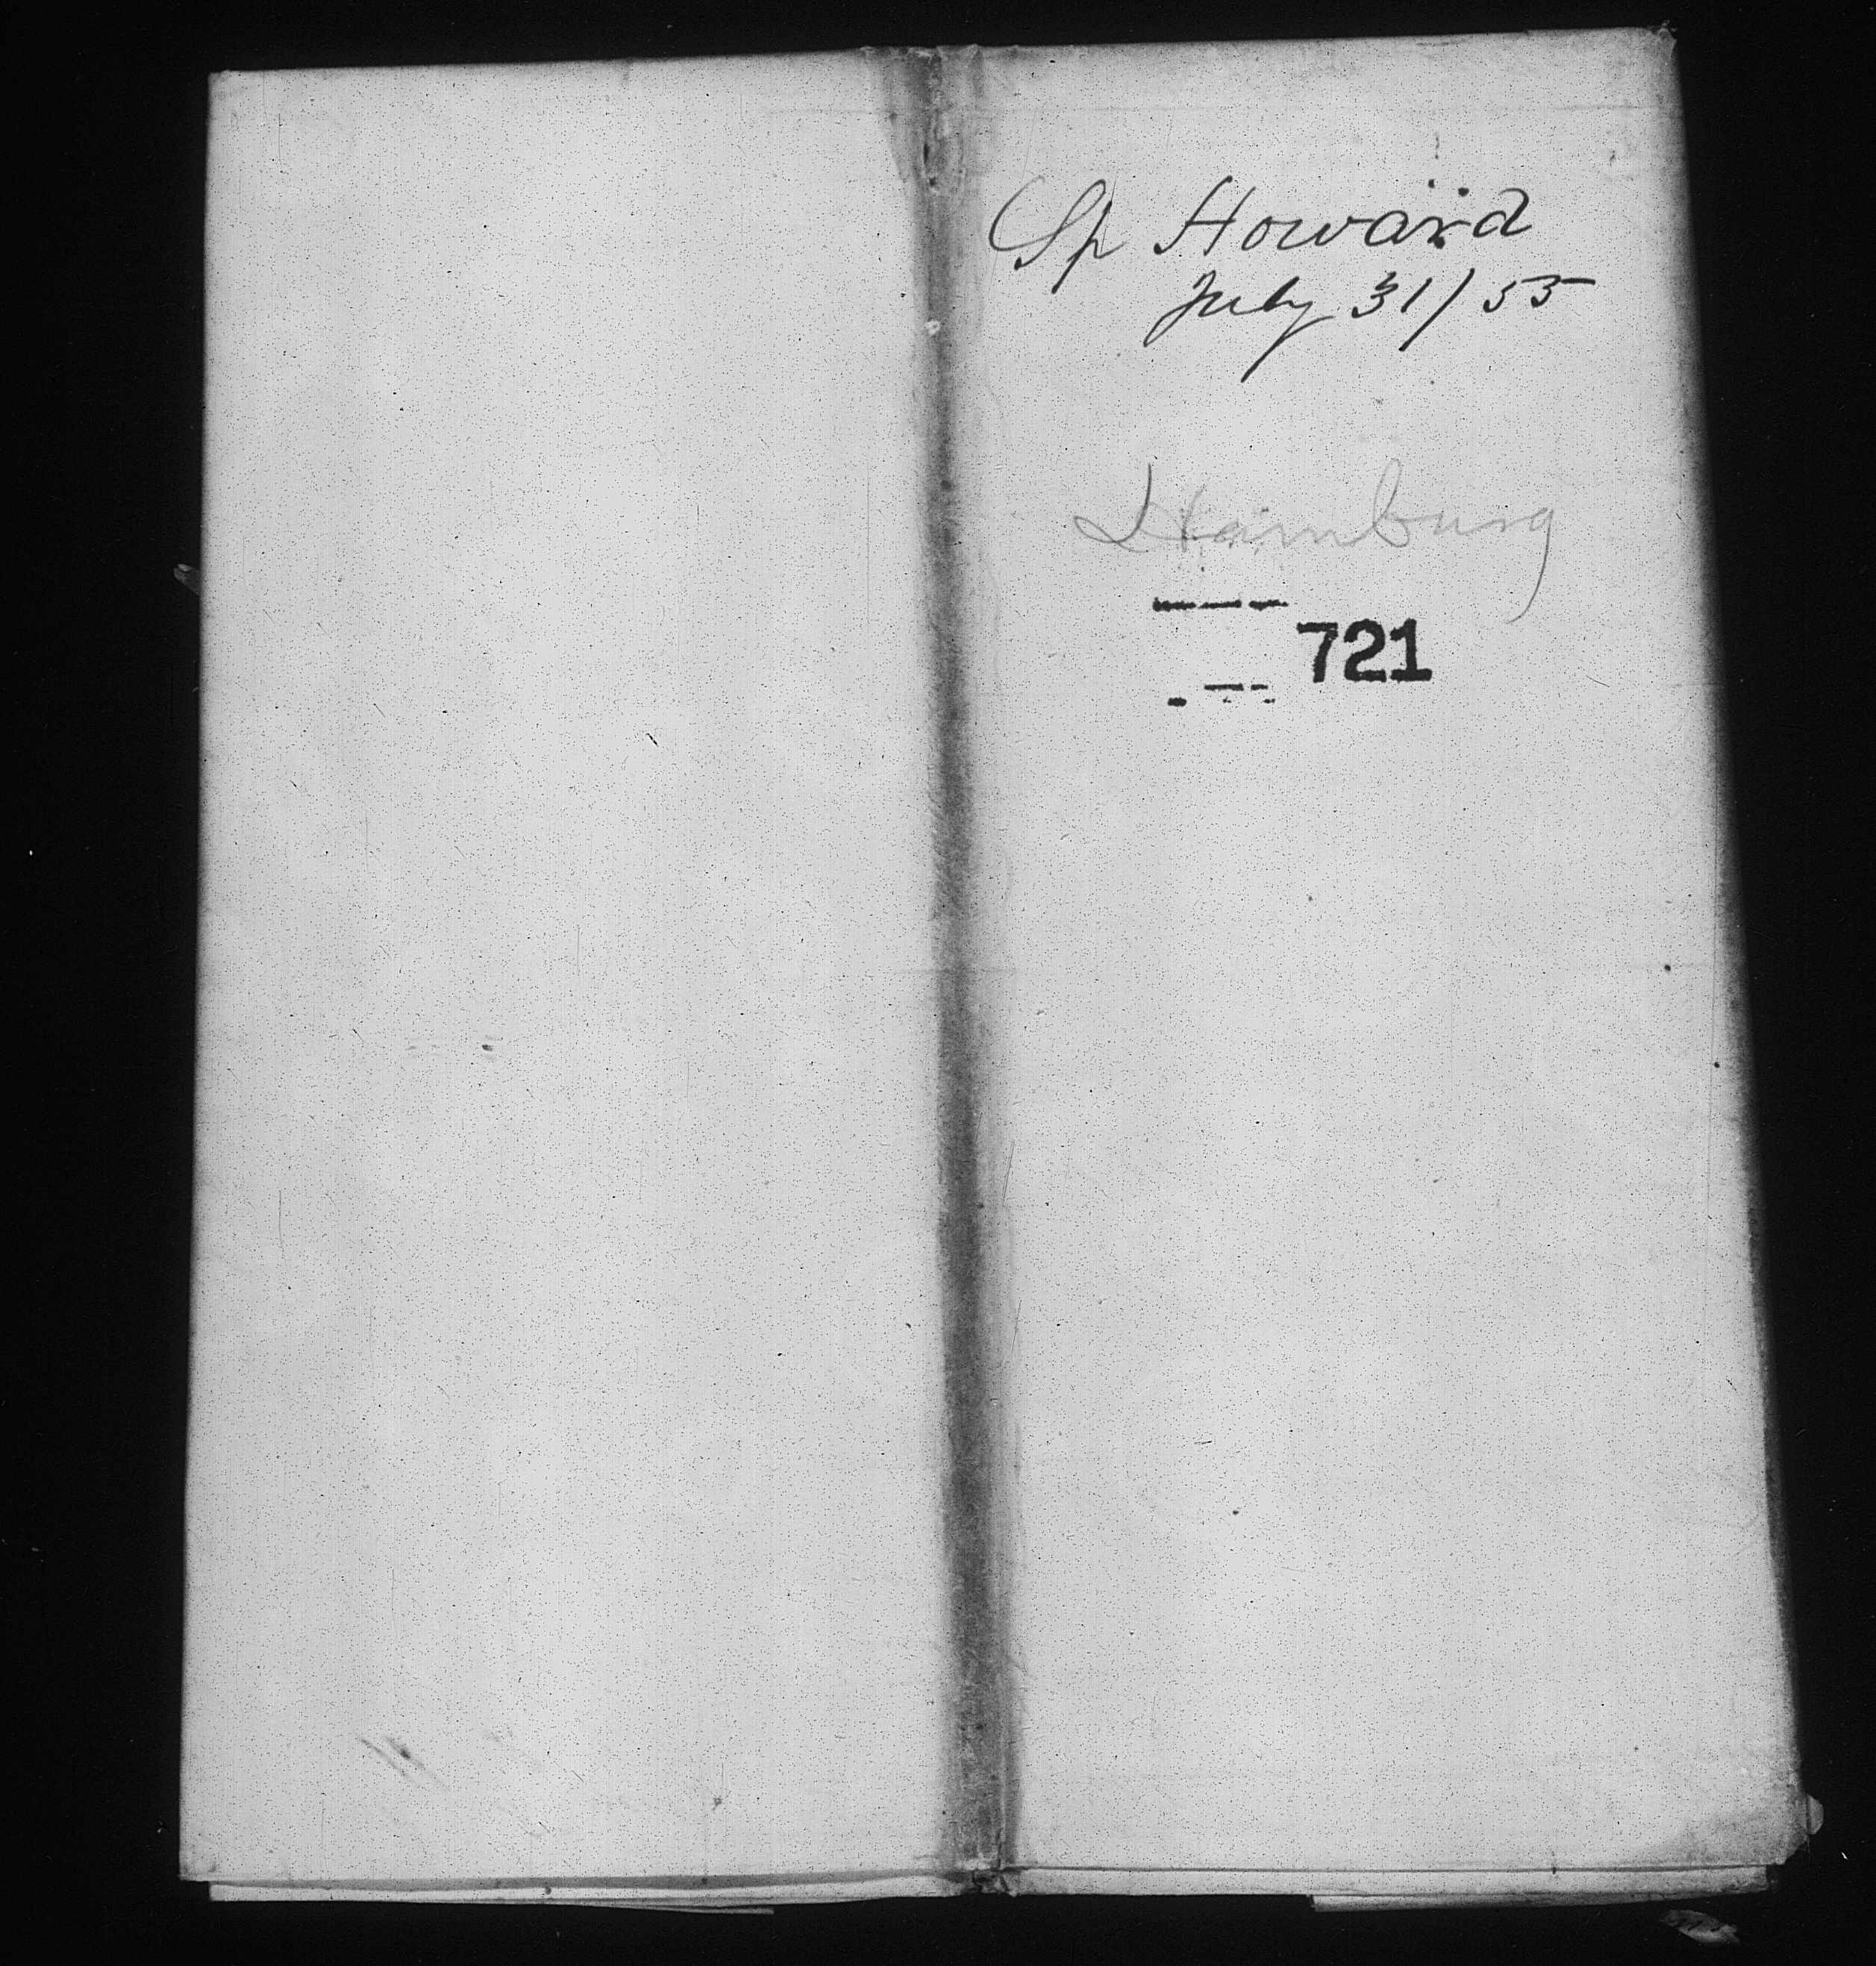 Sp Howard
July 31/55
Hamburg
721